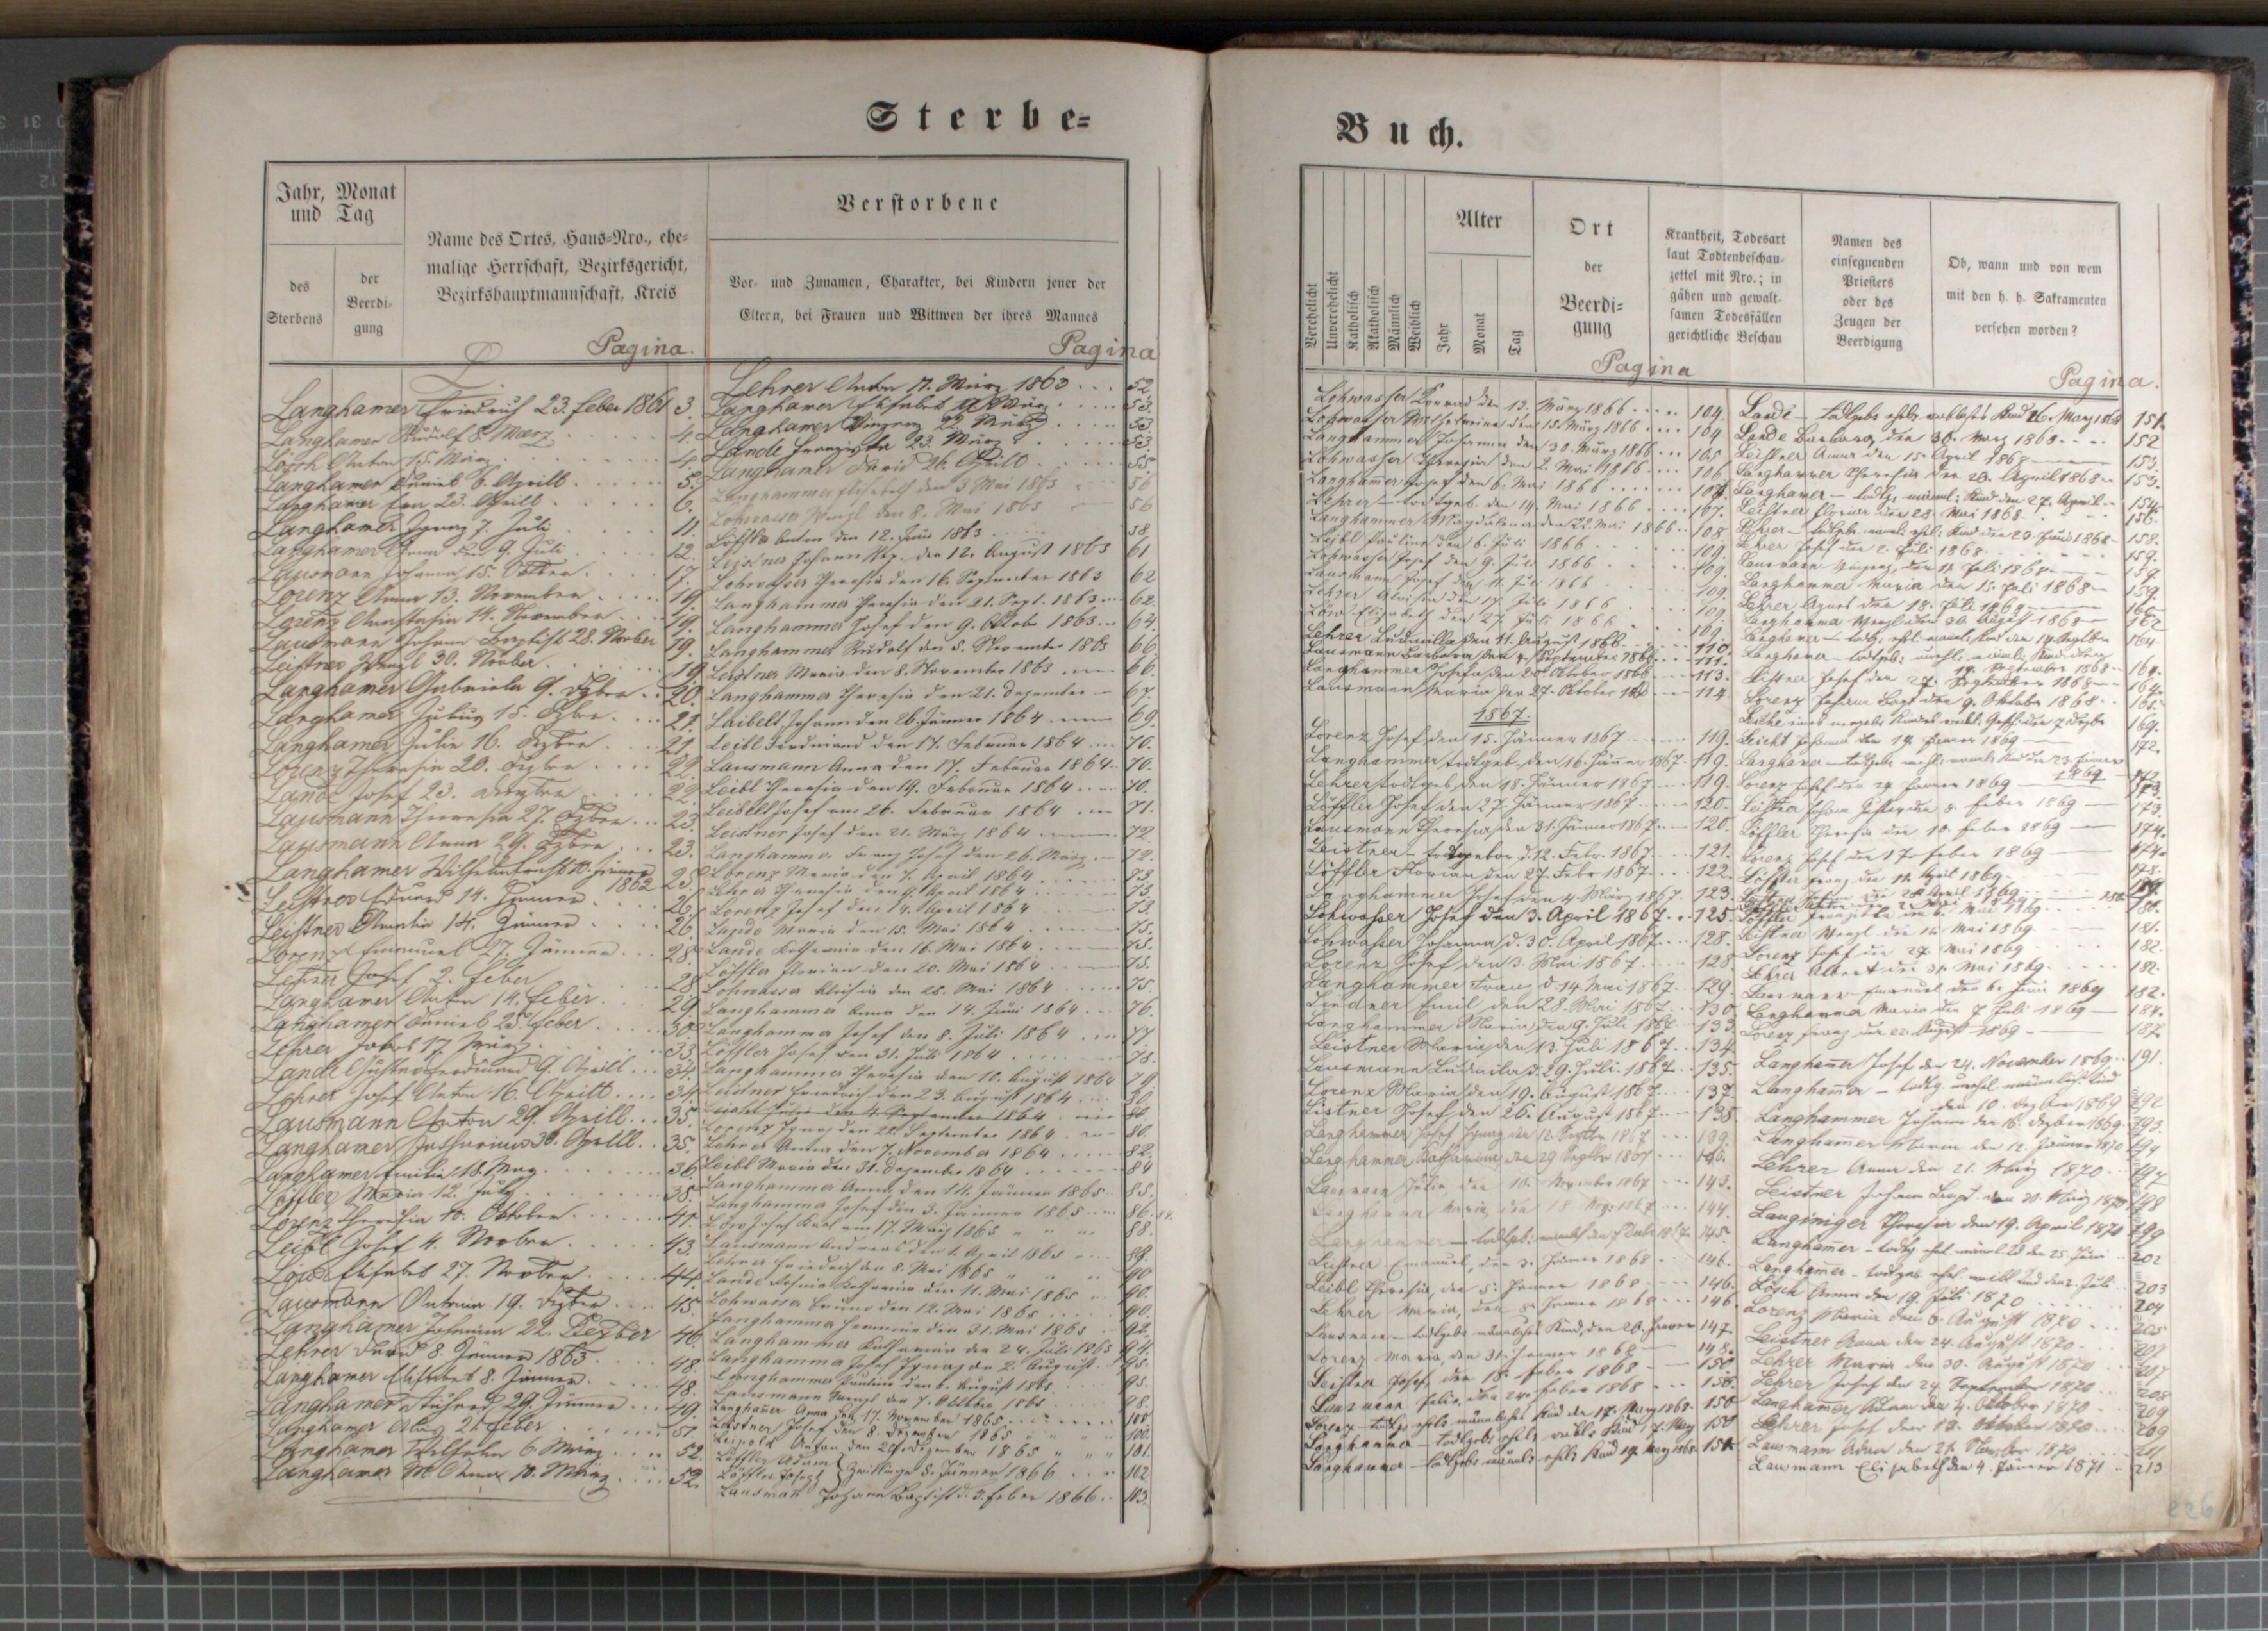 Sterbe=
Jahr, Monat und Tag
des Sterbens
der Beerdi-gung
Name des Ortes, Haus=Nro., ehe-
malige Herrschaft, Bezirksgericht,
Bezirkshauptmannschaft, Kreis
Verstorbene
Vor- und Zunamen, Charakter, bei Kindern jener der
Eltern, bei Frauen und Wittwen der ihres Mannes
L
Pagina.
Langhamer Friedrich 23. Feber 1861 3.
Langhamer Rudolf 8. März 4.
Lösch Anton 15. März 4.
Langhamer Daniel 6. Aprill 5.
Langhamer 23. Aprill 6.
Langhamer Ignaz 7. Juli 11.
Langhamer Anna den 9. Juli 12.
Lausmann Johanna 15. 17.
Lorenz Anna 13. November 19.
Lorenz Annastasia 14. November 19.
Lausmann Johann Baptist 28. Novber 19.
Leistner Wenzl 30. Novber 19.
Langhamer Gabriela 9. Dzber 20.
Langhamer 15. Dzber 21.
Langhamer Julie 16. Dezber 21.
Lorenz Theresia 20. Dezber 22.
Lande Josef 23. Dezber 22.
Lausmann Theresia 27. Dzber 23.
Lausmann Anna 29. Dzber 23.
Langhamer Wilhelm 10. Jänner 1862 25.
Leistner Eduard 14. Jänner 26.
Leistner Amalia 14. Jänner 26.
Lorenz Emanuel 27. Jänner 28.
Lehrer Josef 2. Feber 28.
Langhamer Anton 14. Feber 29.
Langhamer Daniel 25. Feber
Lehrer 17. 33.
Lande Gustav Ferdinand 9. Aprill 34.
Lehrer Josef Anton 16. Aprill 34.
Lausmann Anton 29. Aprill 35.
Langhamer 30. Aprill 35.
Langhamer Emilie 18. May 36.
Löffler Maria 12. July 38.
Lorenz Theresia 10. Oktober 41.
Leibl Josef 4. Novber 43.
Löw Elisabet 27. Novber 44.
Lausmann Antonia 19. Dezber 45.
Langhamer Johanna 22. Dezber 46.
Lehrer 8. Jänner 1863 48.
Langhamer Elisabet 8. Jänner 48.
Langhamer 29. Jänner 49.
Langhamer 21. Feber 51.
Langhamer 6. März 52.
Langhamer M. Anna 10. März 52.
Pagina
Lehrer Anton 17. März 1863 52
Langhamer Elisabet März 53.
Langhamer Vinzenz 22. März 53
Lande Franziska 23. März 53
Langhamer David 26. Aprill 55.
Langhammer Elisabeth den 3. Mai 1863 56
Lohwasser Wenzl den 8. Mai 1863 56
Löffler Anton den 12. Juni 1863 58.
Leistner Johann Nep. den 12. August 1863 61
Lohwasser Theresia den 16. September 1863 62
Langhammer Theresia den 21. Sept. 1863 62.
Langhammer Josef den 9. Oktobe 1863 64
Langhammer Rudolf den 5. November 1863 66.
Leistner Maria den 8. November 1863 66.
Langhammer Theresia den 21. Dezember 67.
Laibelt Johann den 26. Jänner 1864 69.
Leibl Ferdinand den 17. Februar 1864 70.
Lausmann Anna den 17. Februar 1864 70.
Leibl Theresia den 19. Februar 1864 70.
Leibelt Josef am 26. Februar 1864 71.
Leistner Josef den 21. März 1864 72
Langhammer Franz Josef den 26. März 72.
Lorenz Maria den 7. April 1864 73
Lehrer Theresia den 9. April 1864 73
Lorenz Josef den 14. April 1864 73.
Lande Maria den 15. Mai 1864 75.
Lande Katharina den 16. Mai 1864 75.
Löffler Florian den 20. Mai 1864 75.
Lohwasser Aloisia den 28. Mai 1864 75.
Langhammer Anna den 14. Juni 1864 76.
Langhammer Josef den 8. Juli 1864 77.
Löffler Josef den 31. Juli 1864 78.
Langhammer Theresia den 10. August 1864 79
Leistner Friedrich den 23. August 1864 80.
Leibl den 4. September 1864
Lorenz Ignaz den 22. September 1864 80.
Lehrer Anna den 7. November 1864 82.
Leibl Maria den 31. Dezember 1864 84
Langhammer Anna den 14. Jänner 1865 85.
Langhammer Josef den 3. Jänner 1865 86.
Löw Josef Karl am 17. März 1865 88.
Lausmann Andreas den 1. April 1865 88
Lehrer Friedrich den 8. Mai 1865 90
Lande Katharina den 11. Mai 1865 90.
Lohwasser Bruno den 12. Mai 1865 90.
Langhammer Hermine den 31. Mai 1865 92.
Langhammer Katharina den 24. Juli 1865 94.
Langhammer Josef Ignaz den 2. August 95.
Langhammer Pauline den 6. August 1865 95.
Lausmann Wenzl den 7. Oktober 1865 98.
Langham̄er Anna den 17. November 1865 100.
Leistner Josef den 8. Dezember 1865 100.
Leipold Anton den 24. Dezember 1865 101.
Löffler Adam
Löffler Josef } Zwillinge 5. Jänner 1866 102
Lausman Johann Baptist d. 3. Feber 1866 103.
Buch.
Verehelicht
Unverehelicht
Katholisch
Akatholisch
Männlich
Weiblich
Alter
Jahr
Monat
Tag
Ort
der
Beerdi-
gung
Krankheit, Todesart
laut Todtenbeschau-
zettel mit Nro.; in
gähen und gewalt-
samen Todesfällen
gerichtliche Beschau
Namen des
einsegnenden
Priesters
oder des
Zeugen der
Beerdigung
Ob, wann und von wem
mit den h. h. Sakramenten
versehen worden?
Pagina
Lohwasser Konrad den 13. März 1866 104.
Lohwasser den 15. März 1866 104
Langhammer Johanna den 30. März 1866 105
Lohwasser Theresia den 2. Mai 1866 106
Langham̄er Josef den 6. Mai 1866
Lehrer todtgeb. den 14. Mai 1866 107.
Langhammer Magdalena den 22. Mai 1866 108
Leibl Pauline den 6. Juli 1866 109.
Lohwasser Josef den 9. Juli 1866 109.
Lausmann Josef den 11. Juli 1866 109.
Lehrer Aloisia den 17. Juli 1866 109
Löw Elisabeth den 27. Juli 1866 109.
Lehrer Ludmilla den 11. August 1866 110
Lausmann Barbara den 4. September 1866 111.
Langhammer Josefa den 20. Oktober 1866 113.
Lausmann Maria den 27. Oktober 1866 114
1867.
Lorenz Josef den 15. Jänner 1867 119.
Langhammer todtgeb. den 16. Jänner 1867 119.
Lehrer todtgeb. den 18. Jänner 1867 119
Löffler Josef den 27. Jänner 1867 120.
Lausmann Theresia den 31. Jänner 1867 120.
Leistner todtgeboren d. 12. Febr. 1867 121.
Löffler Florian den 27. Febr 1867 122.
Langhammer Josef den 4. März 1867 123
Lohwasser Josef den 3. April 1867 125
Lohwasser Johanna d. 30. April 1867 128.
Lorenz Josef den 3. Mai 1867 128
Langhammer Franz d. 14. Mai 1867 129
Lindner Emil den 28. Mai 1867 130
Langhammer Maria den 9. Juli 1867 133
Leistner Maria den 13. Juli 1867 134
Lausmann Ludmila d. 29. Juli 1867 135
Lorenz Maria den 19. August 1867 137.
Listner Josef den 26. August 1867 138
Langhammer Josef Ignaz den 12. Septbr 1867 139.
Langhammer Katharina den 29. Septbr 1867
Lausmann Julie den 10. November 1867 143.
Langhamer Maria den 18. Novbr 1867 144.
Langhammer todtgeb. 145.
Leistner Emanuel, den 3. Jänner 1868 146.
Leibl Theresia, den 5. Jänner 1868 146
Lehrer Maria, den 8. Jänner 1868 146
Lausmann todtgeb. männliches Kind, den 20. Jänner 147
Lorenz Maria, den 31. Jänner 1868 148.
Leistner Josef, den 18. Feber 1868 150
Lausmann Felix, den 24. Feber 1868 150.
Lorenz todtg. ehl. männliches Kind den 17. März 1868 150
Langhamer todtgeb. ehl. weibl. Kind 17. März 151
Langhammer todtgeb. männl. ehl. Kind 19. März 1868 151
Pagina.
Lande todtgeb. Kind 26. März 1868 151.
Lande Barbara den 30. März 1868 152
Leistner Anna den 15. April 1868 153.
Langhammer Theresia den 20. April 1868 153.
Langhamer todtg. männl. Kind den 27. April 154.
Leistner den 28. Mai 1868 156.
Lehrer todtgeb. Kind den 23. Juni 1868 158.
Lehrer Josef den 2. Juli 1868 159.
Lausmann den 11. Juli 1868 159.
Langhammer Maria den 15. Juli 1868 159.
Lehrer Agnes den 18. Juli 1868 160
Langhamer Wenzl den 30. August 1868 162
Langhamer todtg. Kind den 14. Septbr 164.
Langhamer todtgeb.
September 1868 164.
Leistner Josef den 27. September 1868 164.
Lorenz Johann Bapt. den 9. Oktober 1868 165.
169.
Leicht Johanna den 19. Jänner 1869 172.
Langhamer todtgeb. Kind den 23. Jänner 1869 172
Lorenz Josef den 29. Jänner 1869 173.
Leistner Johann den 8. Feber 1869 173.
Löffler Theresia den 10. Feber 1869 174.
Lorenz Josef den 17. Feber 1869 174.
Löffler Franz den 11. April 1869
Löffler Franziska den Mai 1869 180.
Leistner Wenzl den 12. Mai 1869 181.
Lorenz Josef den 27. Mai 1869 182.
Lehrer Albert den 31. Mai 1869 182.
Lausmann Emanuel den 6. Juni 1869 182.
Langhamer Maria den 7. Juli 1869 184.
Lorenz Franz den 22. August 1869 187.
Langham̄er Josef den 24. November 1869 191.
Langham̄er todtg. unehel. männliches Kind
den 10. Dezber 1869 192
Langhammer Johann den 16. Dezber 1869 193.
Langhamer Maria den 12. Jänner 1870 194
Lehrer Anna den 21. März 1870 197
Leistner Johann Bapt den 30. März 1870 198
Langiniger Theresia den 19. April 1870 199
Langham̄er todtg. ehel. männl. Kd den 25. Juni 202
Langham̄er todtgeb ehel weibl Kind den 2. Juli 203
Lösch Anna den 19. Juli 1870 204
Lorenz Maria den 6. August 1870 205
Leistner Anna den 24. August 1870 207
Lehrer Maria den 30. August 1870 207
Lehrer Josef den 24. September 1870 208
Langham̄er Adam den 4. Oktober 1870 209
Lehrer Josef den 18. Oktober 1870 209
Lausmann Adam den 21. November 1870 211
Lausmann Elisabeth den 4. Jänner 1871 213
226